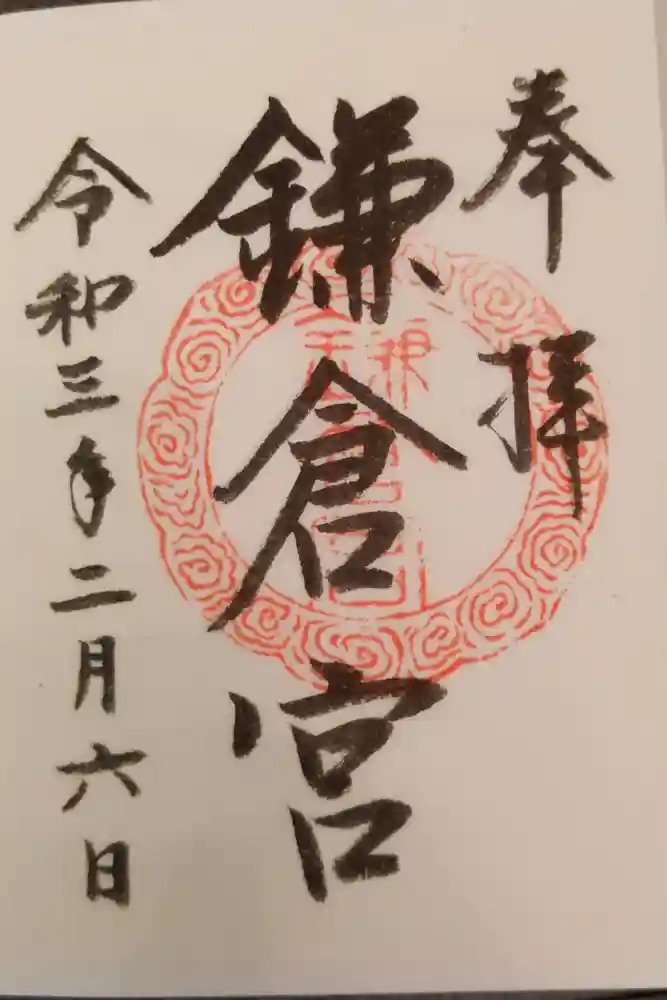 奉拝
鎌倉宮
令和三年二月六日